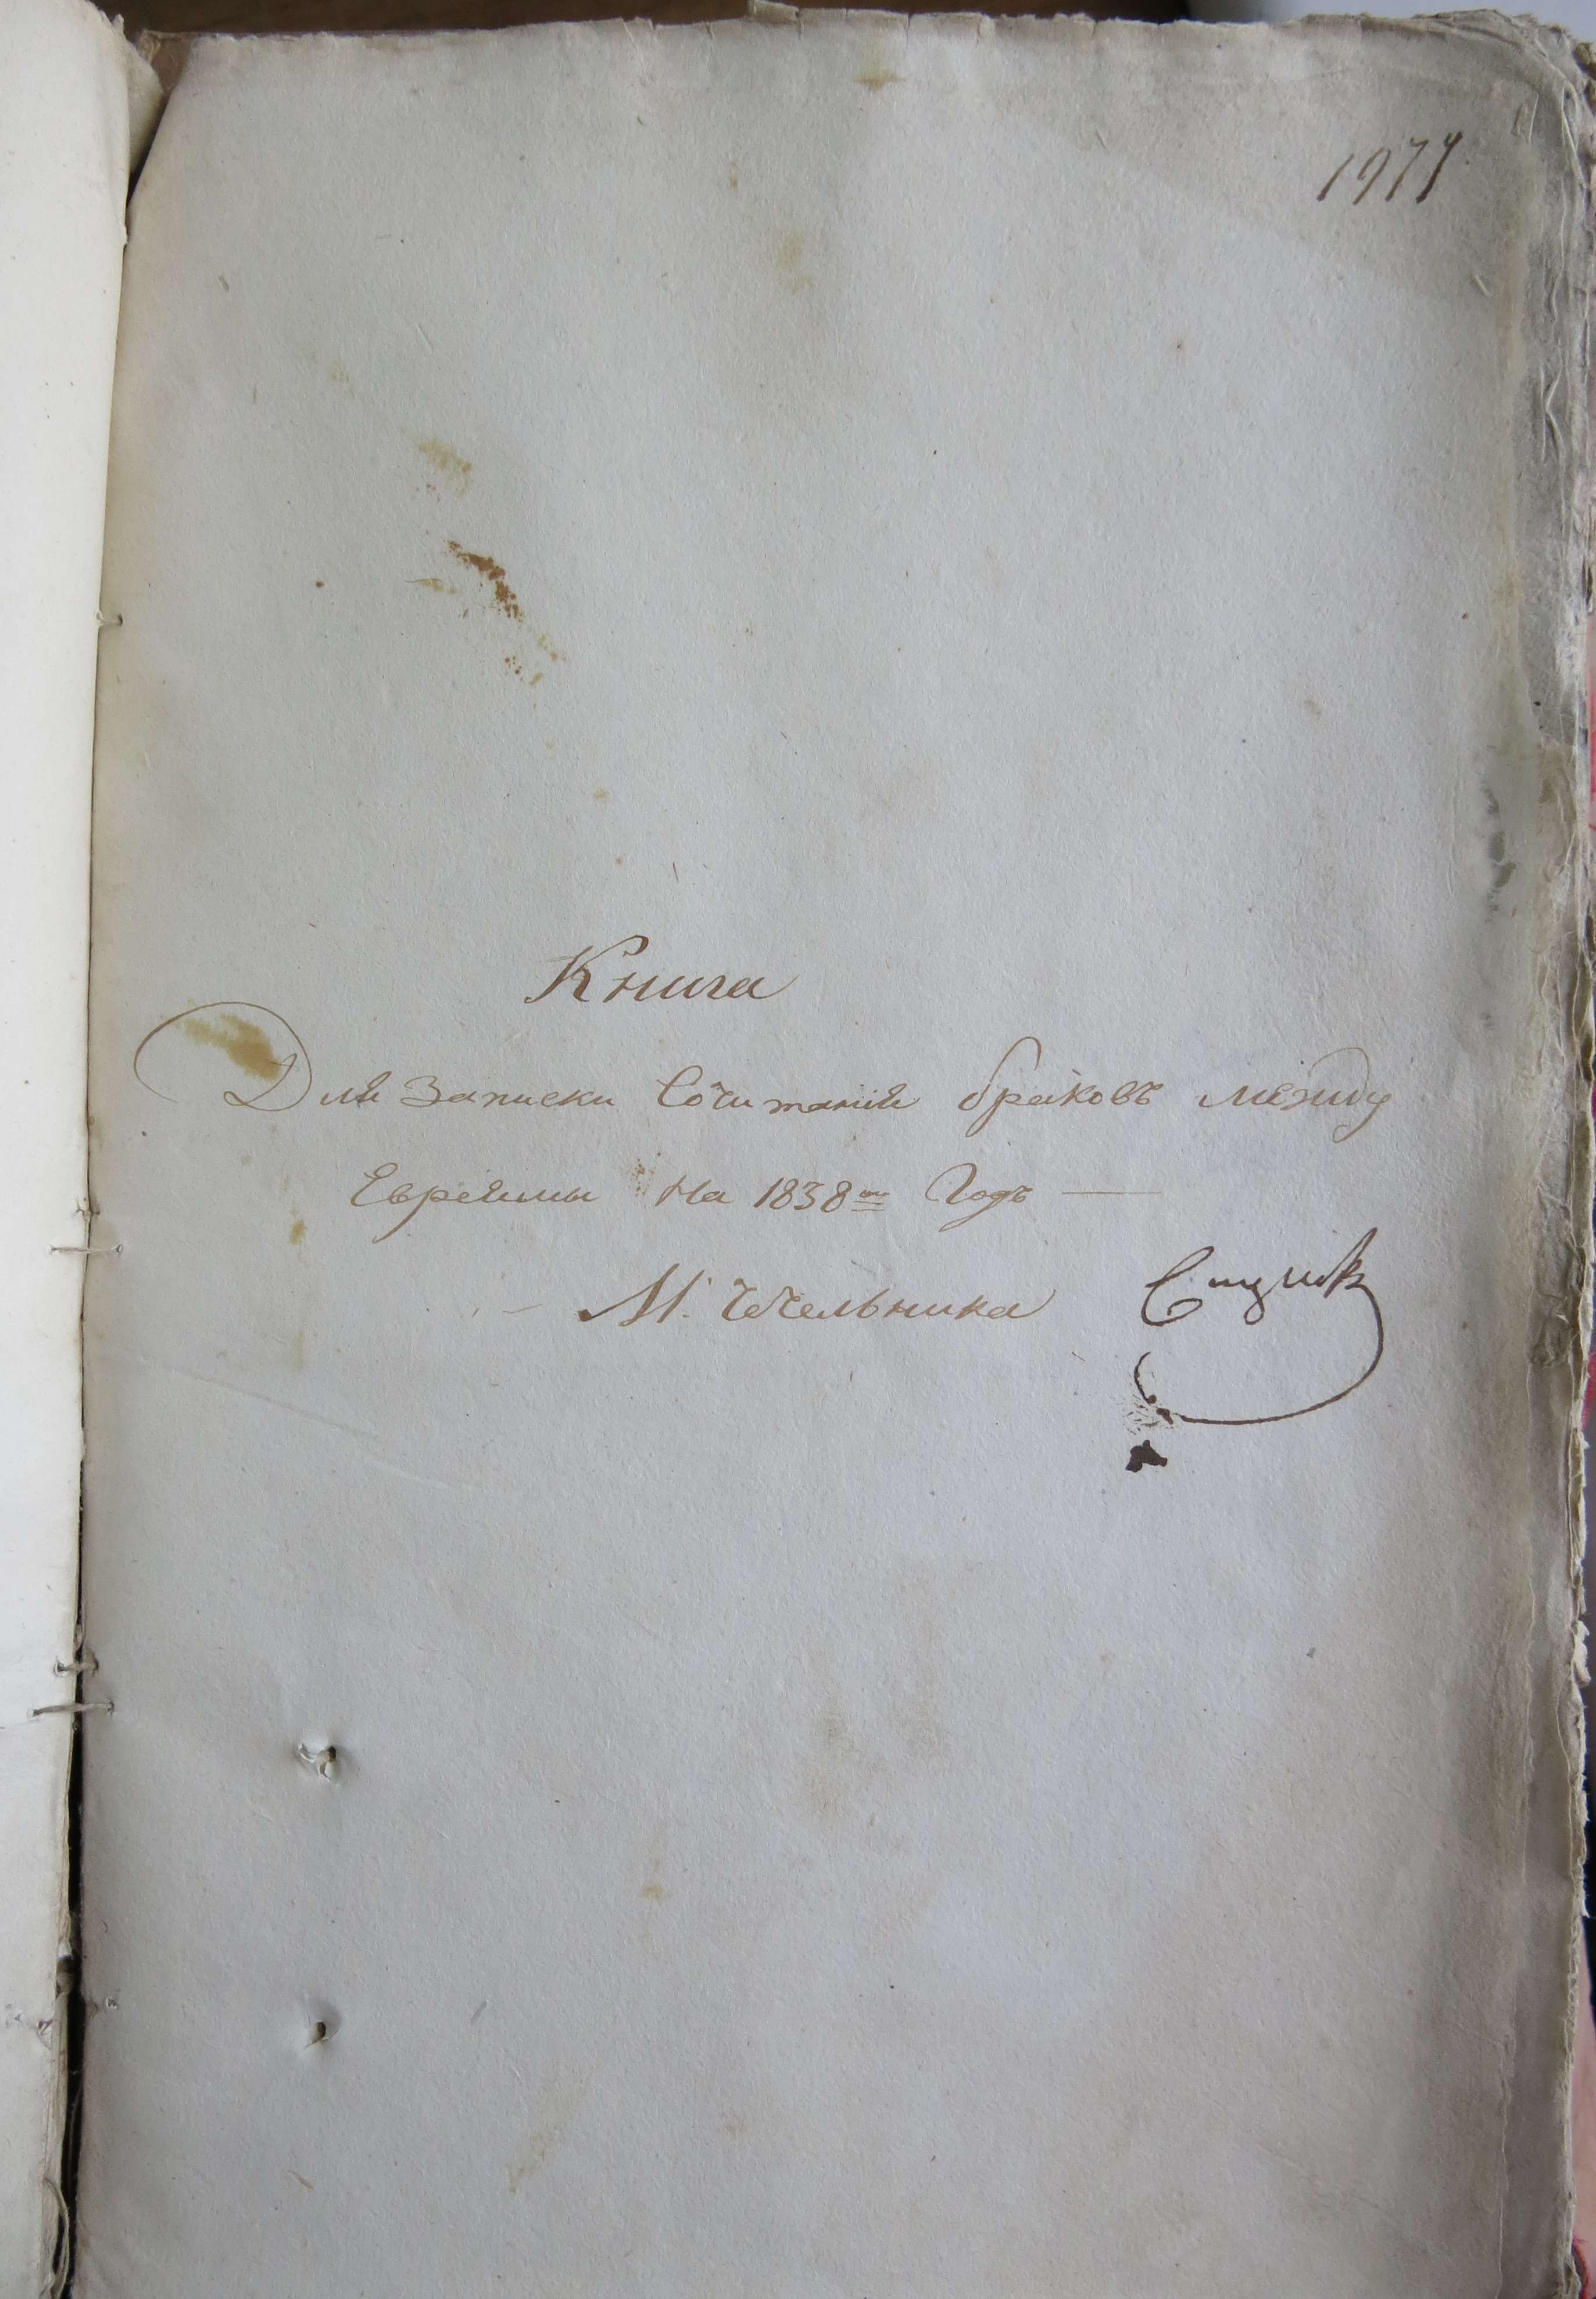 1977
Книга
Для Записки Сочитанія браковъ между
Евреями на 1838й Годъ —
М. Чечельника